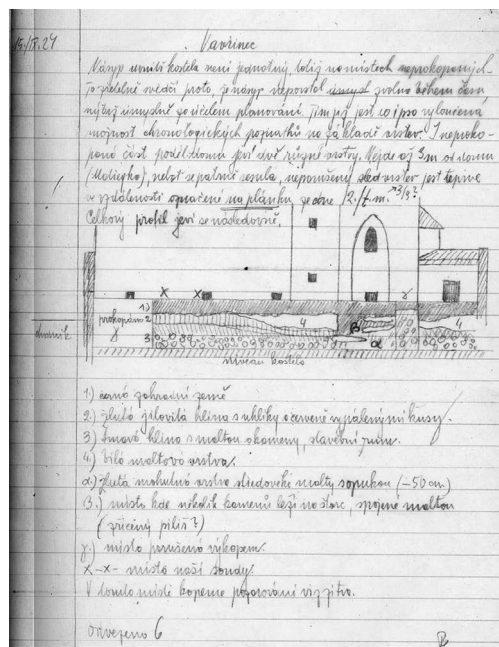 15./IX. 24
Vavřinec
Násyp uvnitř kostela není jednotný, totiž na místech neprokopaných
to zřetelně svědčí proto, že násyp nepovstal zvolna během času,
nýbrž úmyslně za účelem planování. Tím jest eo ipso vyloučena
možnost chronologických poznatků na základě vrstev. I neproko-
paná část podél domu jeví dvě různé vrstvy. Nejde až 3m od domu
neboť se patrně sesula, neporušený sled vrstev jest teprve
ve vzdálenosti označené na plánku,
Celkový profil jeví se následovně.
X X
1)
prokopáno 2
3
4
B
α
γ
4
niveau kostela
1.) černá zahradní země
2.) žlutá jílovitá hlína s uhlíky a červeně vypálenými kusy.
3.) tmavá hlína s maltou a kameny, stavební rum.
4.) bílá maltová vrstva.
α.) žlutá mohutná vrstva středověké malty s opukou (-50 cm)
β.) místo kde několik kamenů leží na štorc, spojené maltou
(zřícený pilíř?)
γ.) místo porušené výkopem.
x-x- místo naší sondy.
V tomto místě kopeme pozorování viz zítra.
Odvezeno 6
B